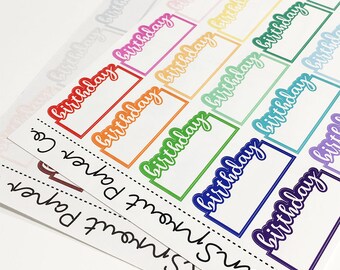 birthday
birthday
birthday
birthday
birthday
birthday
birthday
birthday
birthday
birthday
birthday
birthday
Sprout Paper Co.
Sprout Paper